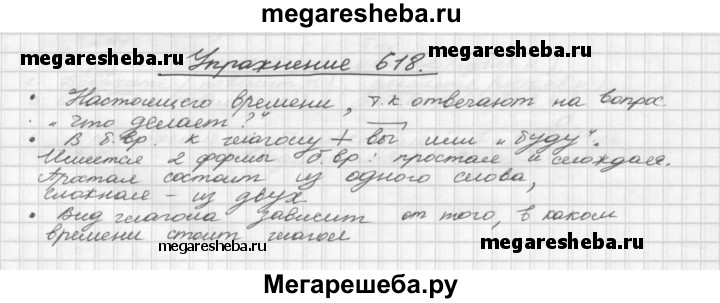 megaresheba.ru
Упражнение 618.
• Настоящего времени, т.к отвечают на вопрос
megaresheba.ru „что делает?" megaresheba.ru
• В б.вр. к глаголу + вы или „буду".
Имеется 2 формы б.вр: простая и сложная.
Простая состоит из одного слова,
сложная – из двух.
• Вид глагола зависит от того, в каком
времени стоит глагол
megaresheba.ru megaresheba.ru
Мегарешеба.ру